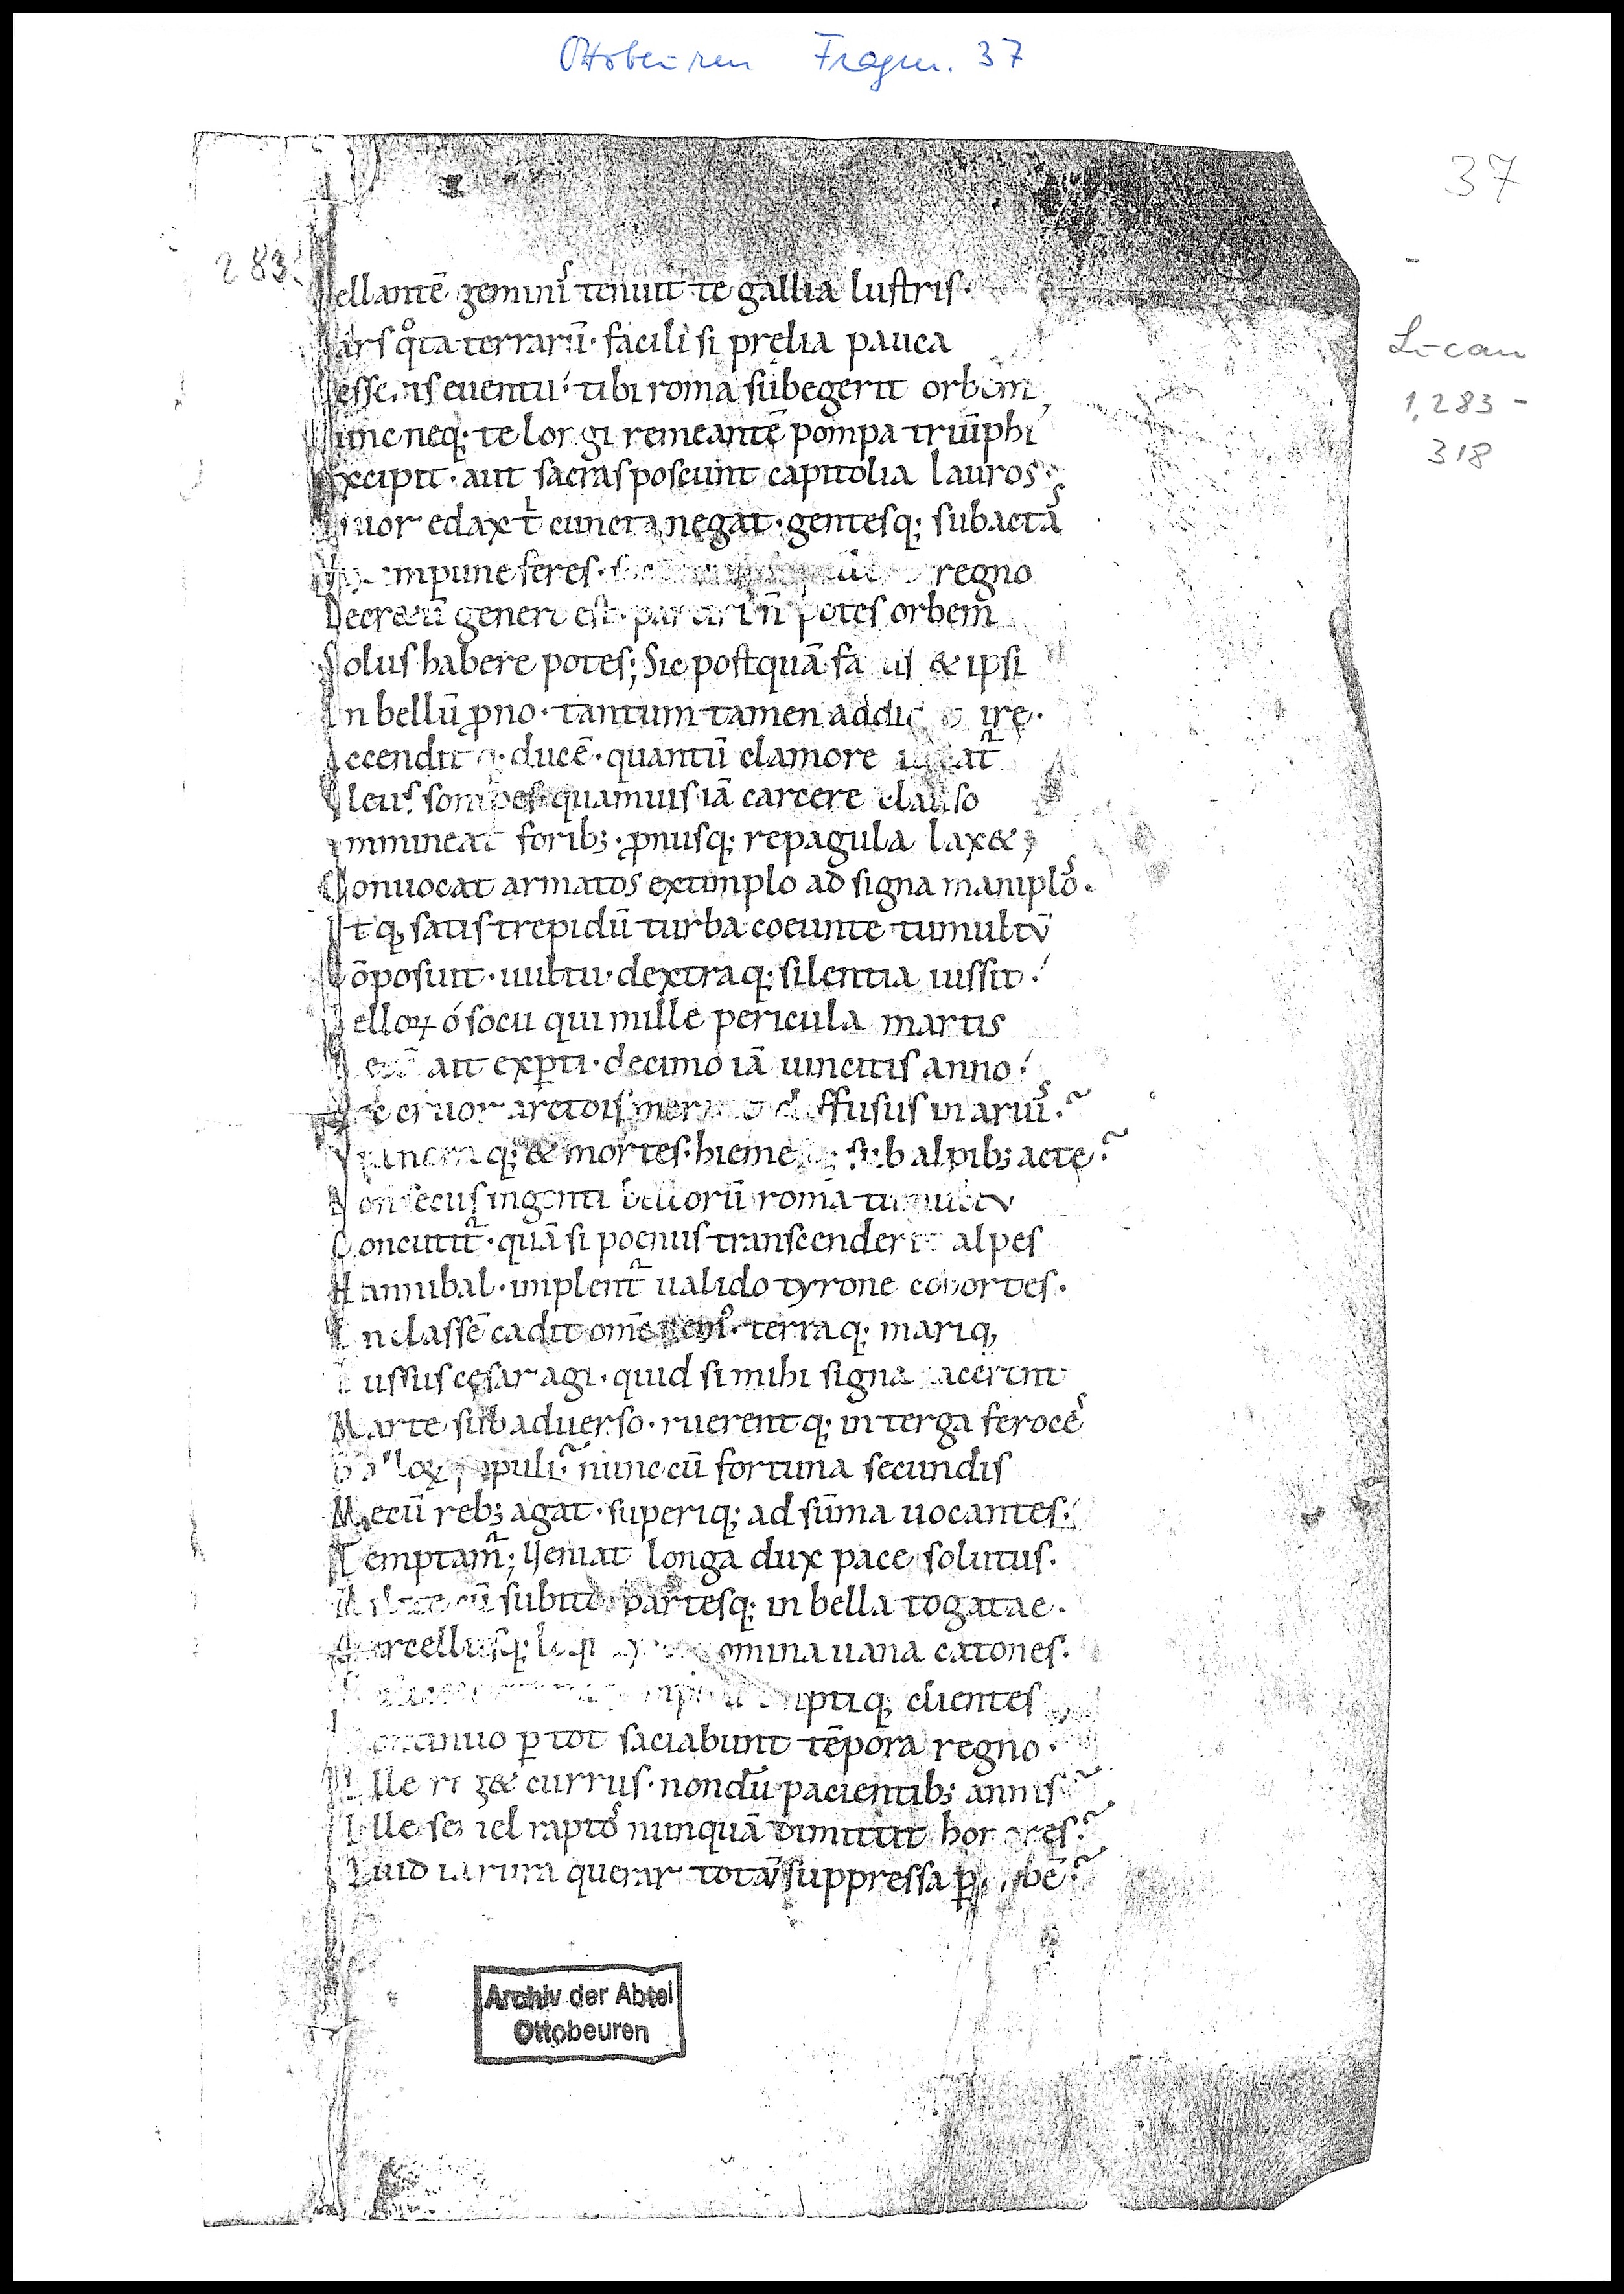 Ottobeuren Fragm. 37
37
283
Lucan
1,283-
318
ellantē geminꝰ tenuit te gallia lustris·
ars qͦta terrarū· facili si prelia pauca
euentu· tibi roma subegerit orbem
unc neq; te remeantē pompa triūphi
Excipit· aut sacras poscunt capitolia lauros·
iuor edax t̄ cuncta negat· gentesq; subactaˢ
impune feres· regno
Decretū genero est· n̄ potes orbem
Solus habere potes; Sic postquā & ipsi
In bellū ꝓno· tantum tamen ire·
Accenditq; ducē· quantū clamore
quamuis iā carcere clauso
Immineat forib; · ꝓnusq; repagula lax&;
Conuocat armatos extimplo ad signa maniploᷤ·
Vtq; satis trepidū turba coeunte tumultū
Cōposuit· uultu· dextraq; silentia iussit·
elloꝝ ó socii qui mille pericula martis
ait exꝑti· decimo iā uincitis anno·
cruor arctois diffusus in aruiᷤ·
q; & mortes· hiemes sub alpib; acte·
Non secus ingenti bellorū roma
Concutit᷑· quā si poenus transcenderit alpes
Hannibal· implent᷑ ualido tyrone cohortes·
In classē cadit omē terraq; mariq;
Iussus cesar agi· quid si mihi signa iacerent
Marte sub aduerso· ruerentq; in terga feroceᷤ
populi· nunc cū fortuna secundis
Mecū reb; agat· superiq; ad sūma uocantes·
Temptam᷑; Veniat longa dux pace solutus·
Milite cū subito partesq; in bella togatae·
Marcellusq; omina uana catones·
emptiq; clientes
Continuo ꝑ tot saciabunt tēpora regno·
Ille reg& currus· nondū pacientib; annis
Ille semel raptoᷤ nunquā dimittit honores·
Quid iā rura querar totū suppressa ꝑ orbē·
Archiv der Abtei
Ottobeuren